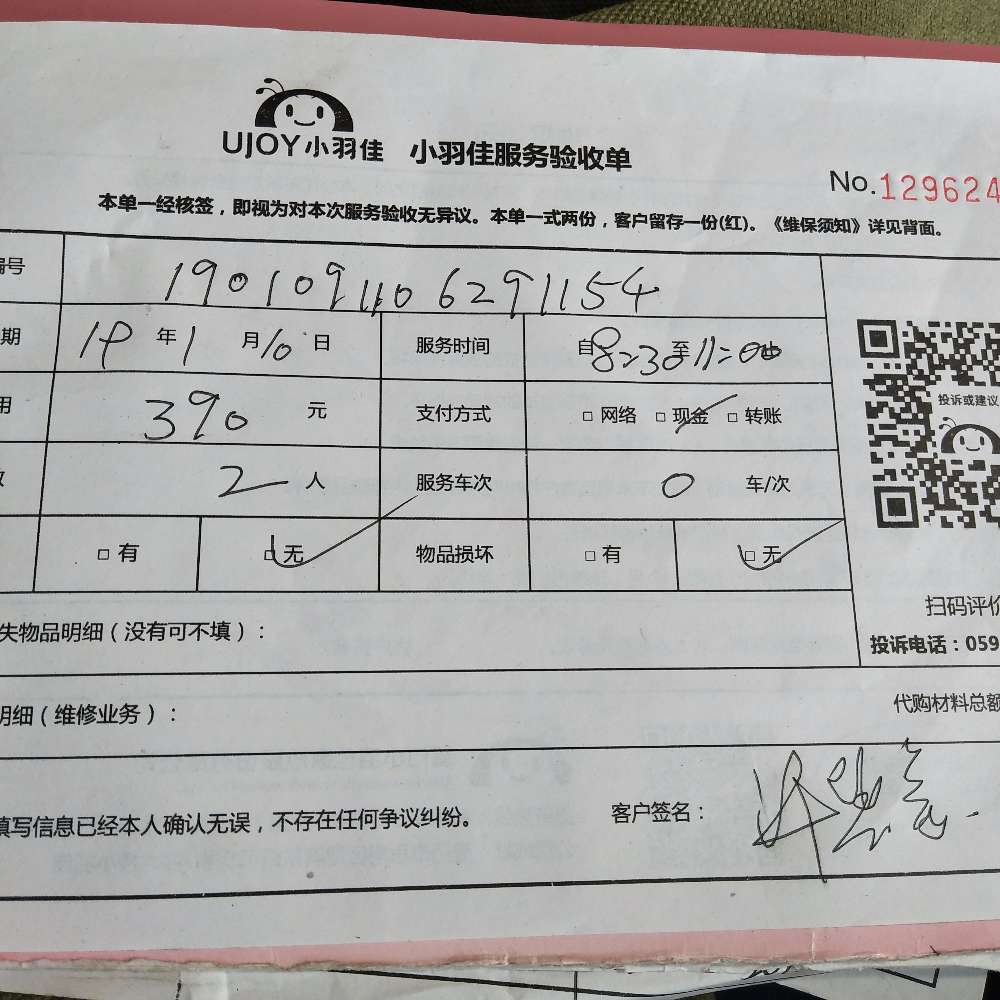 UJOY小羽佳 小羽佳服务验收单
No.129624
本单一经核签，即视为对本次服务验收无异议。本单一式两份，客户留存一份(红)。《维保须知》详见背面。
编号 1901091106291154
期 19年1月10日 服务时间 自8:30至11:00
用 390元 支付方式 □ 网络 □ 现金 □ 转账
投诉或建议
数 2人 服务车次 0 车/次
□ 有 □ 无 物品损坏 □ 有 □ 无
扫码评价
失物品明细（没有可不填）：
投诉电话：059
明细（维修业务）：
代购材料总额
填写信息已经本人确认无误，不存在任何争议纠纷。 客户签名：